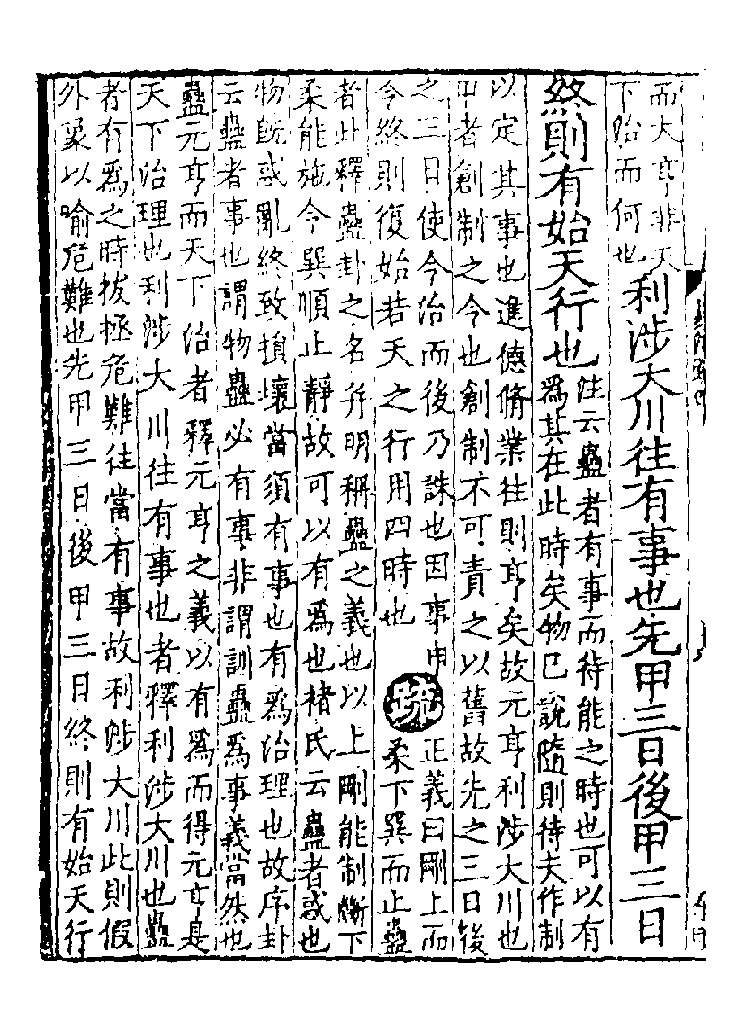 而大亨非天
下治而何也
利涉大川往有事也先甲三日後甲三日
終則有始天行也
注云蠱者有事而待能之時也可以有
爲其在此時矣物已說隨則待夫作制
以定其事也進德脩業往則亨矣故元亨利涉大川也
甲者創制之令也創制不可責之以舊故先之三日後
之三日使令洽而後乃誅也因事申
令終則復始若天之行用四時也
疏
正義曰剛上而
柔下巽而止蠱
者此釋蠱卦之名并明稱蠱之義也以上剛能制斷下
柔能施令巽順止靜故可以有爲也褚氏云蠱者惑也
物既惑亂終致損壞當須有事也有爲治理也故序卦
云蠱者事也謂物蠱必有事非謂訓蠱爲事義當然也
蠱元亨而天下治者釋元亨之義以有爲而得元亨是
天下治理也利涉大川往有事也者釋利涉大川也蠱
者有爲之時拔拯危難往當有事故利涉大川此則假
外象以喻危難也先甲三日後甲三日終則有始天行